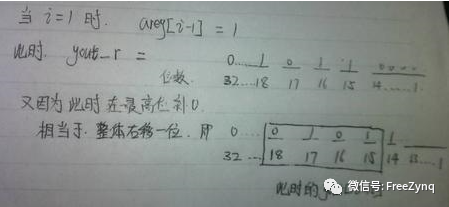 当 i=1 时. areg[i-1] = 1
此时. yout_r = 0....1 0 1 1 0000
位数. 32....18 17 16 15 14....1
又因为此时在最高位补0.
相当于. 整体右移一位. 即 0....0 1 0 1 1
32....18 17 16 15 14 13....1
此时的
微信号: FreeZynq